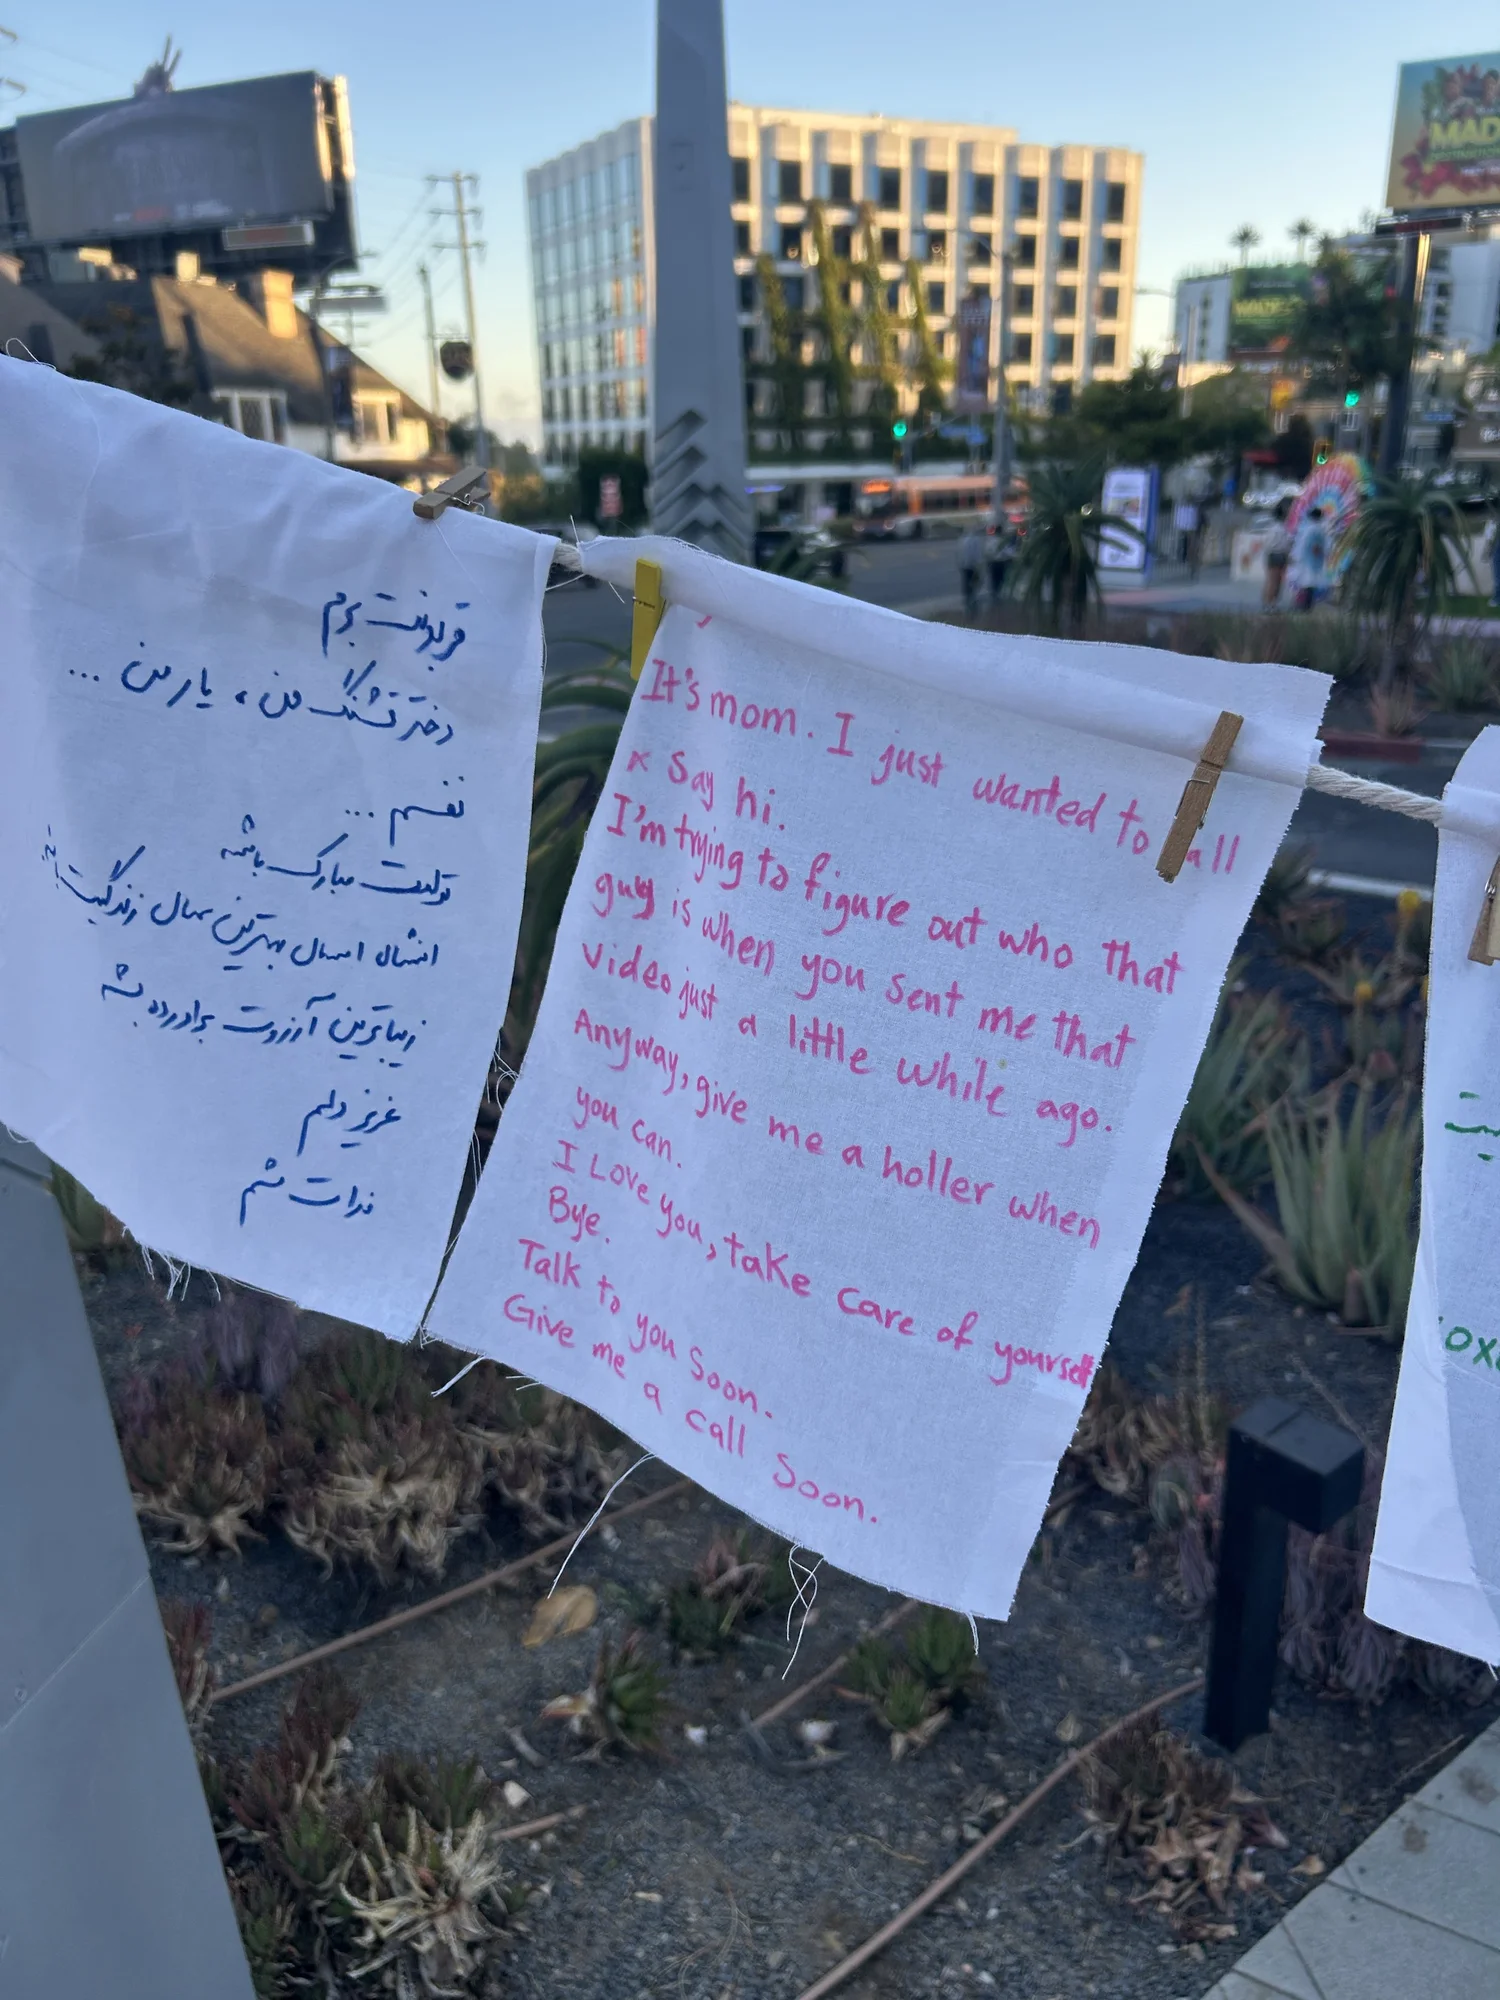 قربونت برم
دختر قشنگ من، یار من ...
نفسم ...
تولدت مبارک باشه
انشالا امسال بهترین سال زندگیت
زیباترین آرزوت برآورده بشه
عزیز دلم
فدات شم
It's mom. I just wanted to all
& Say hi.
I'm trying to figure out who that
guy is when you sent me that
video just a little while ago.
Anyway, give me a holler when
you can.
I Love you, take care of yourself
Bye.
Talk to you Soon.
Give me a call Soon.
MAD